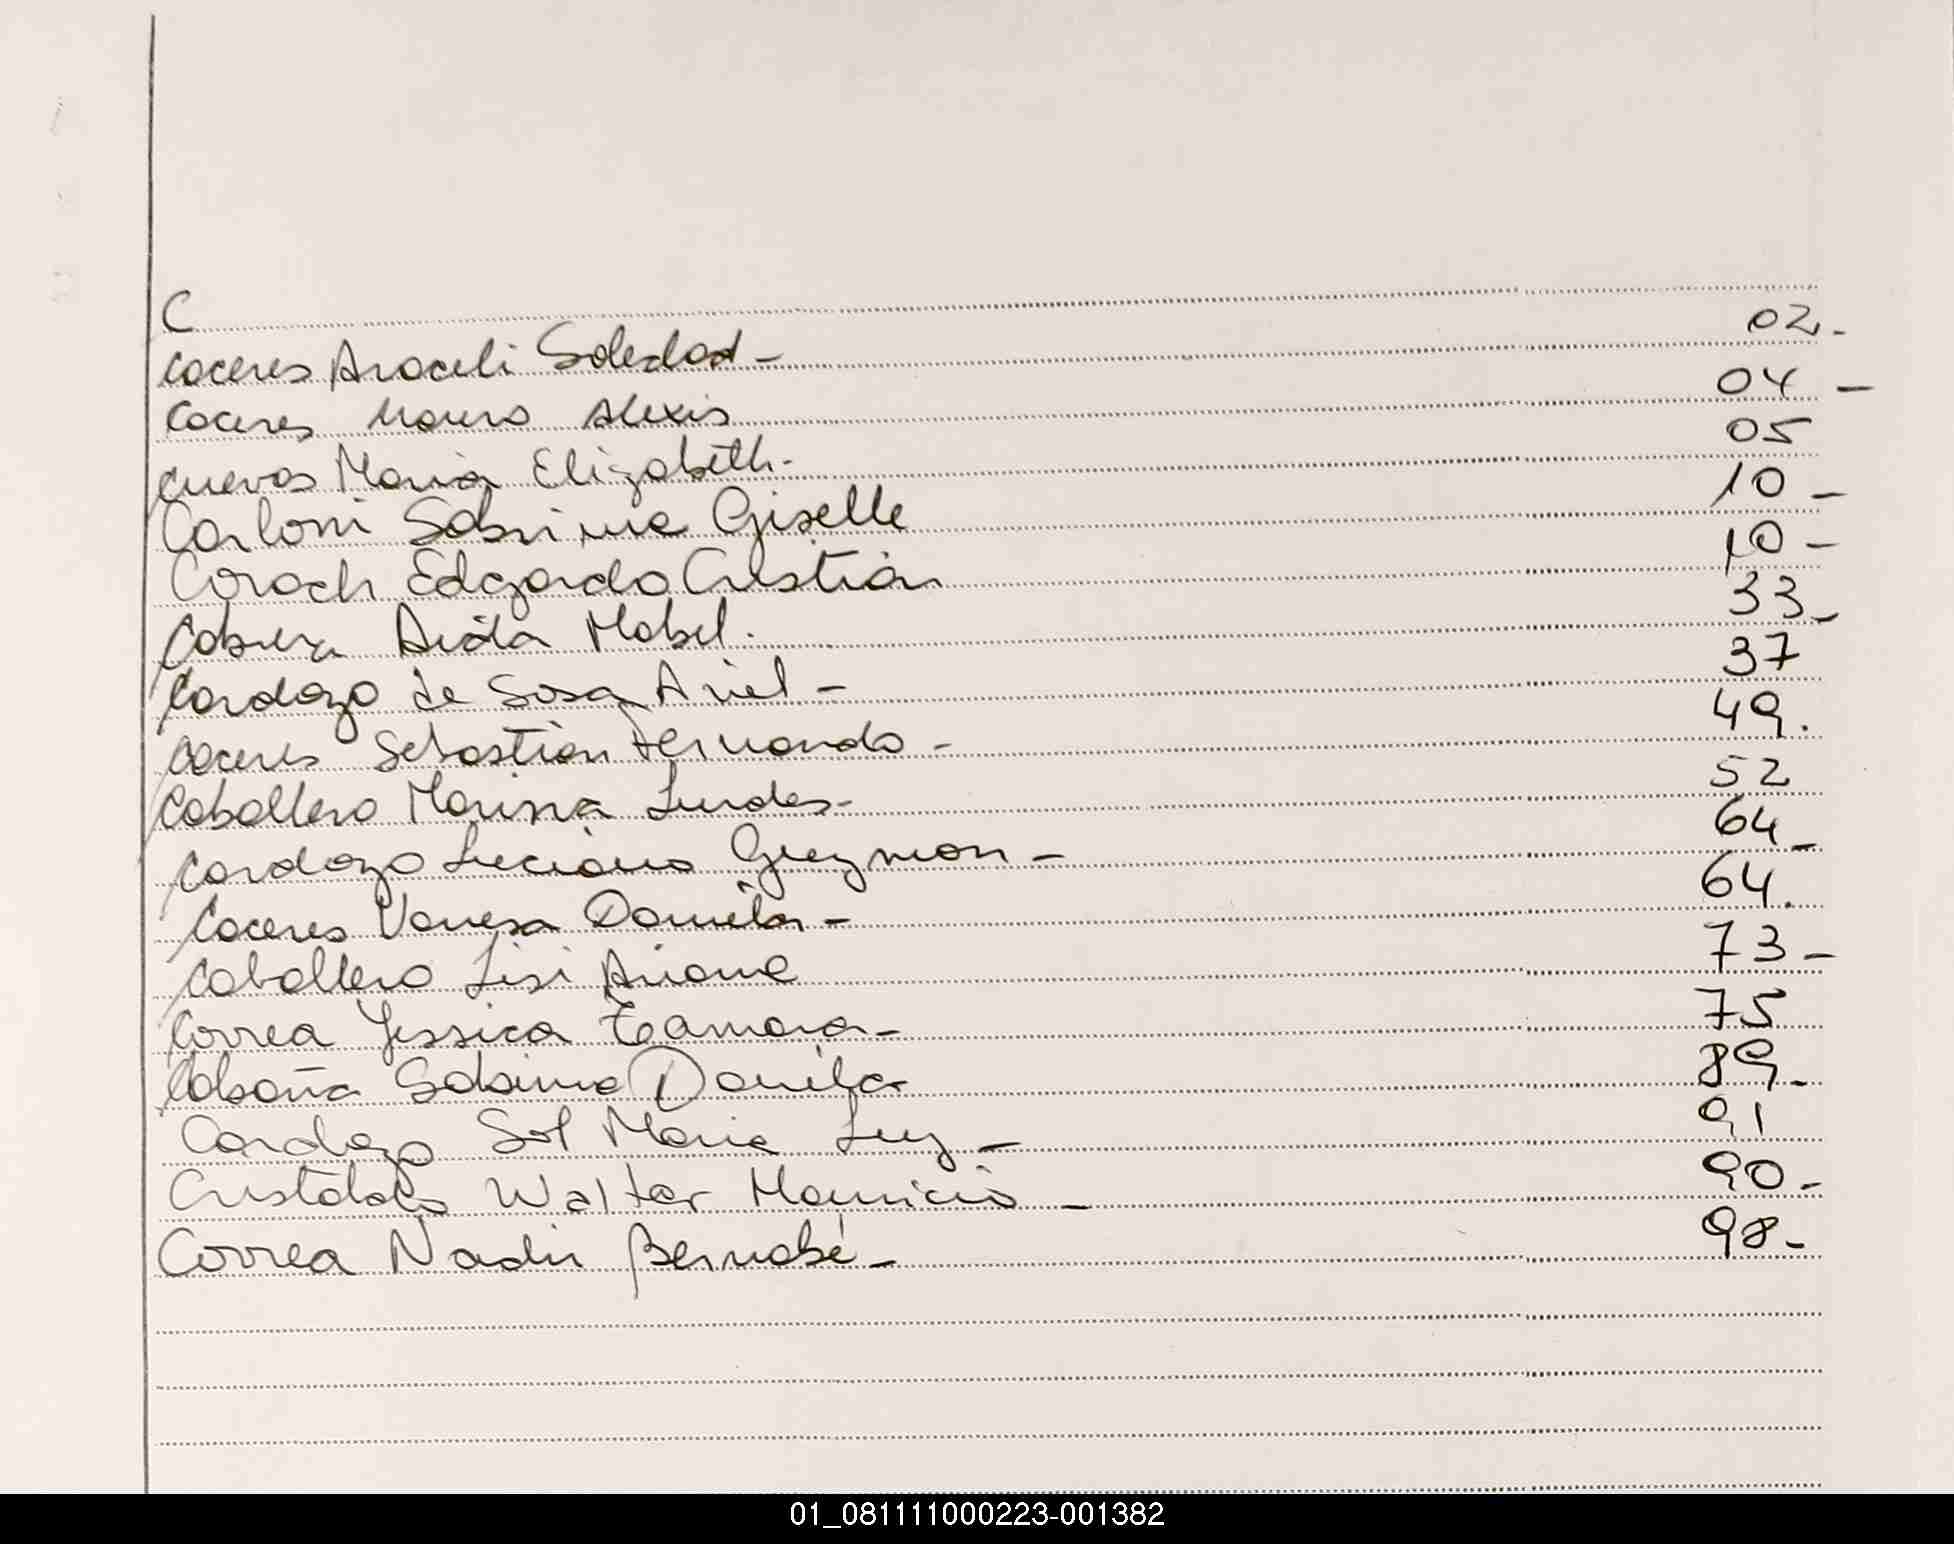 C
Caceres Araceli Soledad - 02.-
Caceres Mauro Alexis 04 -
Cuevas Maria Elizabeth.- 05
Carloni Sabrina Giselle 10 -
Corach Edgardo Cristian 10 -
Cabrera Aida Mabel. 33 -
Cardozo de Sosa Ariel - 37
Caceres Sebastian Fernando - 49.
Caballero Marina Lurdes - 52
Cardozo Luciano Guzman - 64 -
Caceres Vanesa Daniela - 64.
Caballero Lisi Ariana 73 -
Correa Yessica Tamara - 75
Cabaña Sabina Daniela 89 -
Cardozo Sol Maria Luz - 91
Cristaldo Walter Mauricio - 90 -
Correa Nadir Bernabé - 98 -
01_081111000223-001382